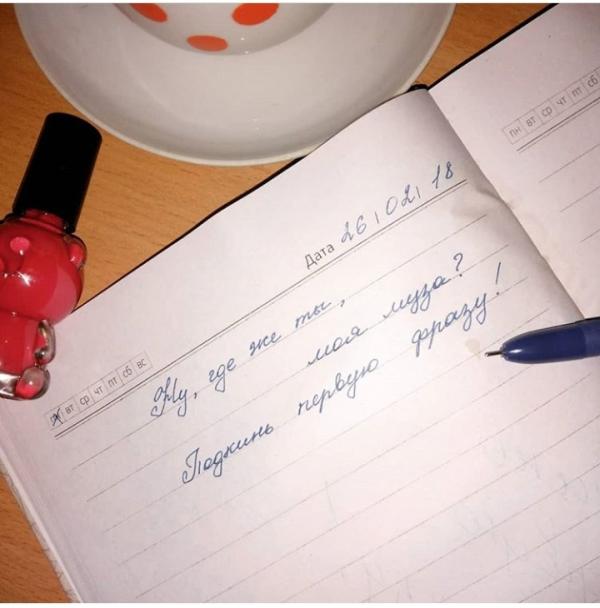 пн вт ср чт пт сб
Дата 26 02 18
вт ср чт пт сб вс
Ну, где же ты,
моя муза?
Подкинь первую фразу!